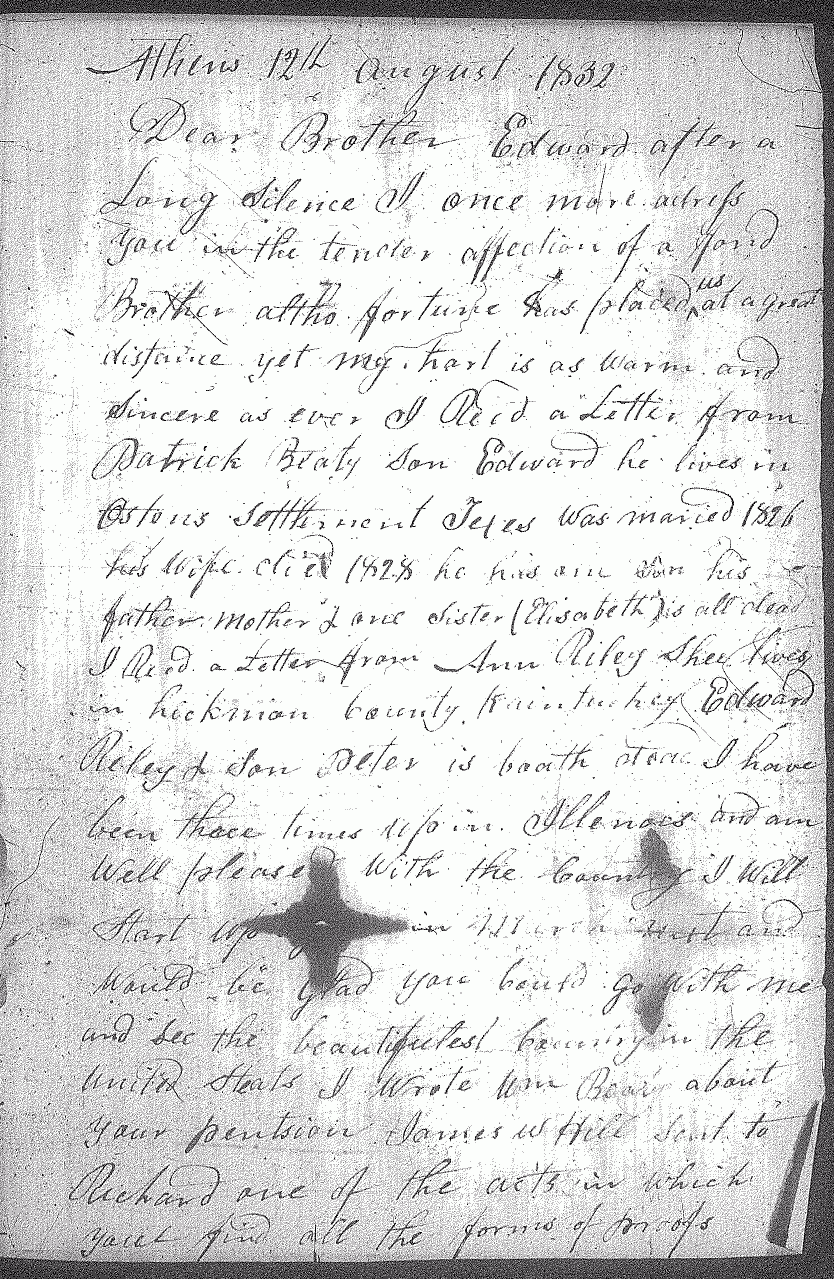 Athens 12th August 1832
Dear Brother Edward after a
Long Silence I once more adress
you in the tender affection of a fond
Brother altho fortune has placed us at a great
distance yet my hart is as warm and
Sincere as ever I Recd a Letter from
Patrick Beaty Son Edward he lives in
Ostons Settlement Texes Was maried 1826
his Wife died 1828 he has one Son his
father mother & one Sister (Elisabeth) is all dead
I Recd a Letter from Ann Riley Shee lives
in hickman County Kaintuckey Edward
Riley & Son Peter is booth dead I have
been three times up in Illenois and am
Well pleased With the Country I Will
Start up in March next and
Would be glad you Could go With me
and See the beautifulest Country in the
united Steats I Wrote Wm about
your pentsion James W Hill Sent to
Richard one of the acts in which
youl find all the forms of proofs